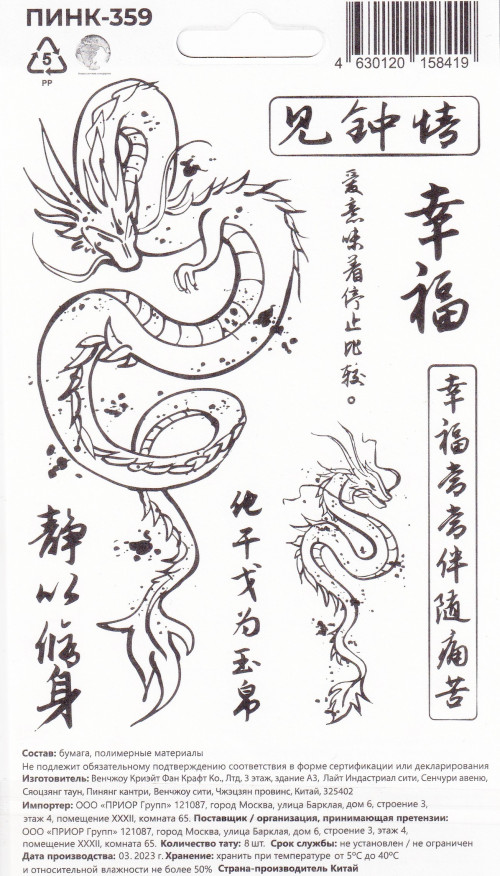 ПИНК-359
5
PP
4 630120 158419
见钟情
爱意味着停止比较。
幸福
幸福常常伴随痛苦
静以修身
化干戈为玉帛
Состав: бумага, полимерные материалы
Не подлежит обязательному подтверждению соответствия в форме сертификации или декларирования
Изготовитель: Венчжоу Криэйт Фан Крафт Ко., Лтд, 3 этаж, здание А3, Лайт Индастриал сити, Сенчури авеню,
Сяоцзянг таун, Пинянг кантри, Венчжоу сити, Чжэцзян провинс, Китай, 325402
Импортер: ООО «ПРИОР Групп» 121087, город Москва, улица Барклая, дом 6, строение 3,
этаж 4, помещение XXXII, комната 65. Поставщик / организация, принимающая претензии:
ООО «ПРИОР Групп» 121087, город Москва, улица Барклая, дом 6, строение 3, этаж 4,
помещение XXXII, комната 65. Количество тату: 8 шт. Срок службы: не установлен / не ограничен
Дата производства: 03. 2023 г. Хранение: хранить при температуре от 5°С до 40°С
и относительной влажности не более 50% Страна-производитель Китай